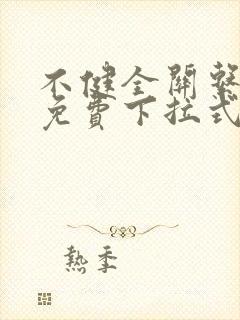 不健全關繫
免費下拉式
熱季